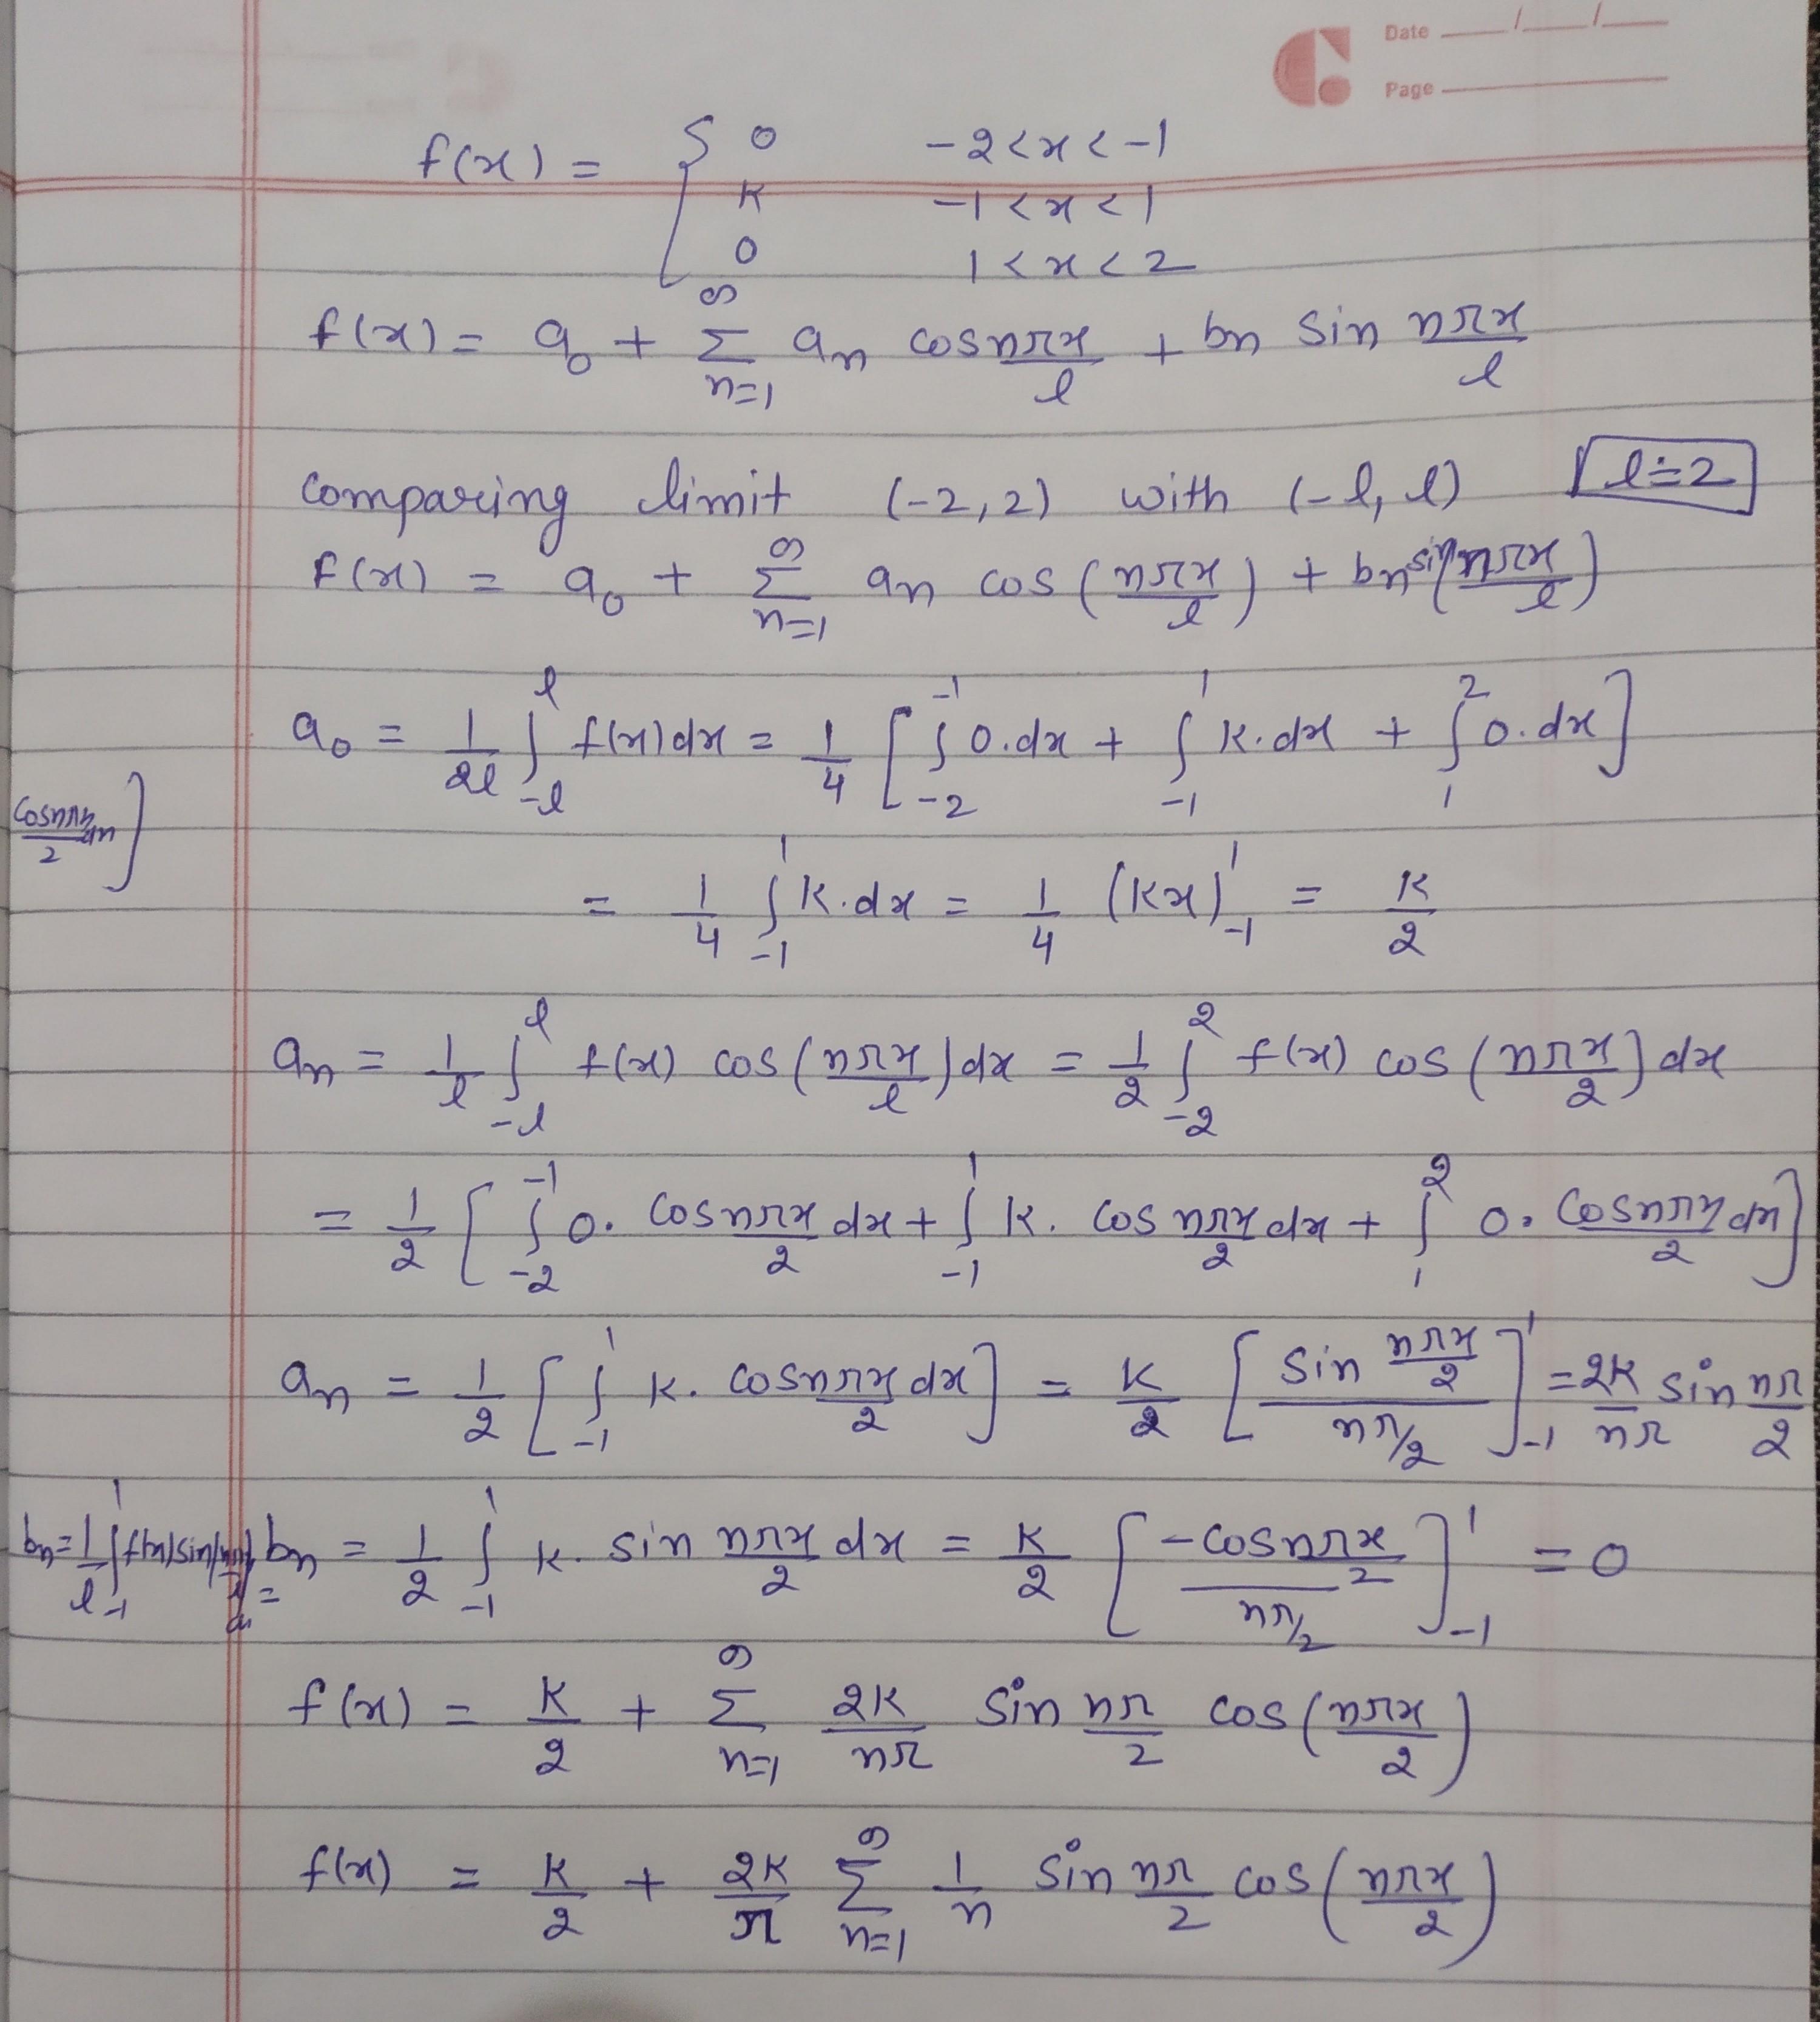 Date __/__/__
Page ____
f(x) = { 0   -2<x<-1
k   -1<x<1
0   1<x<2
f(x) = a₀ + ∑_{n=1}^{∞} aₙ cos nπx/l + bₙ sin nπx/l
comparing limit (-2,2) with (-l, l)   l=2
f(x) = a₀ + ∑_{n=1}^{∞} aₙ cos (nπx/l) + bₙ sin(nπx/l)
a₀ = 1/2l ∫_{-l}^{l} f(x)dx = 1/4 [∫_{-2}^{-1} 0.dx + ∫_{-1}^{1} k.dx + ∫_{1}^{2} 0.dx]
= 1/4 ∫_{-1}^{1} k.dx = 1/4 (kx)_{-1}^{1} = k/2
aₙ = 1/l ∫_{-l}^{l} f(x) cos (nπx/l) dx = 1/2 ∫_{-2}^{2} f(x) cos (nπx/2) dx
= 1/2 [∫_{-2}^{-1} 0. cos nπx/2 dx + ∫_{-1}^{1} k. cos nπx/2 dx + ∫_{1}^{2} 0. cos nπx/2 dx]
aₙ = 1/2 [∫_{-1}^{1} k. cos nπx/2 dx] = k/2 [sin nπx/2 / nπ/2]_{-1}^{1} = 2k/nπ sin nπ/2
bₙ = 1/l ∫_{-1}^{1} f(x) sin
bₙ = 1/2 ∫_{-1}^{1} k. sin nπx/2 dx = k/2 [-cos nπx/2 / nπ/2]_{-1}^{1} = 0
f(x) = k/2 + ∑_{n=1}^{∞} 2k/nπ sin nπ/2 cos (nπx/2)
f(x) = k/2 + 2k/π ∑_{n=1}^{∞} 1/n sin nπ/2 cos (nπx/2)